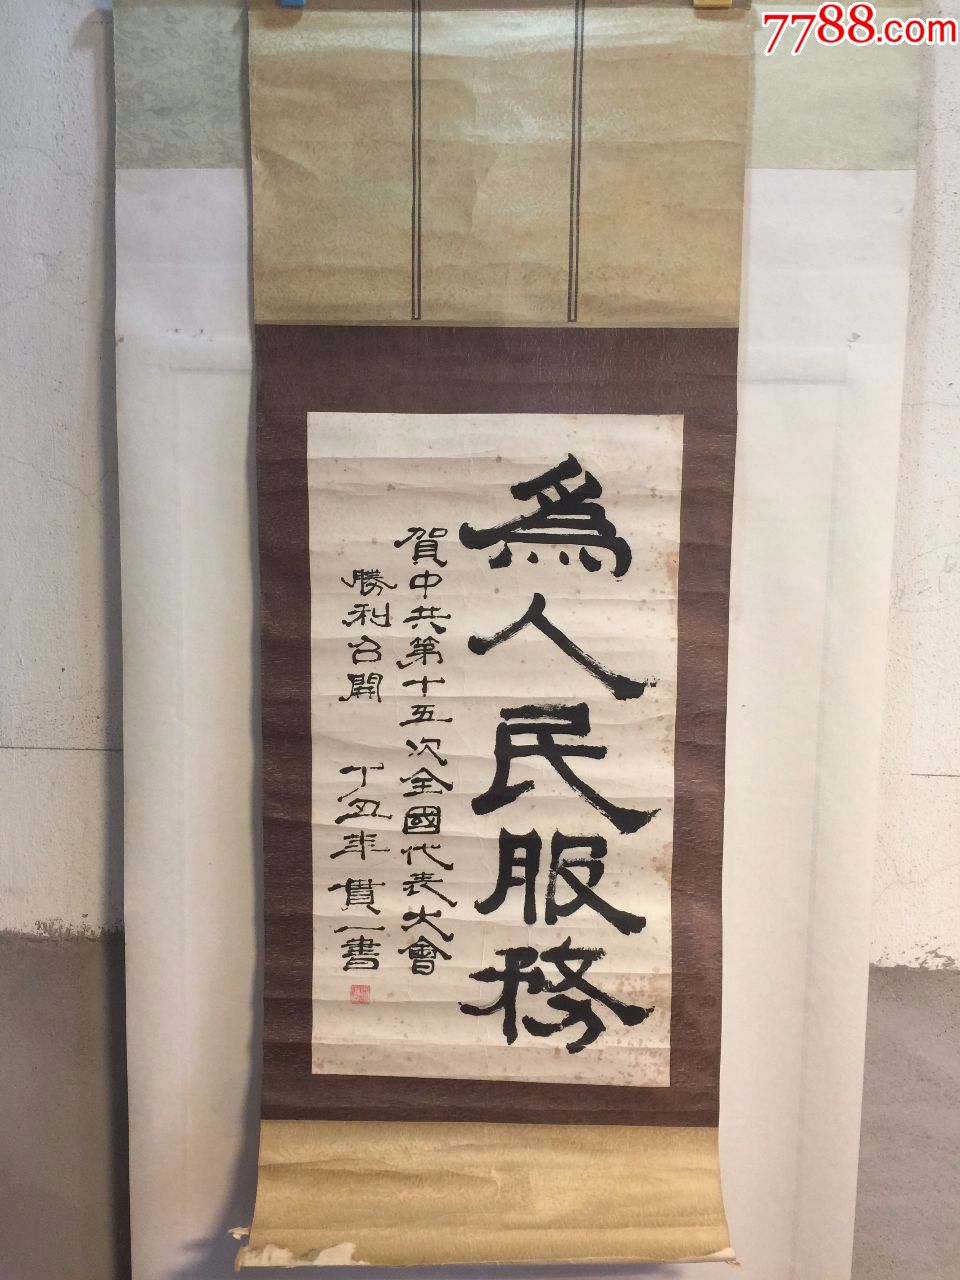 7788.com
為人民服務
賀中共第十五次全國代表大會
勝利台開
丁丑年貫一書